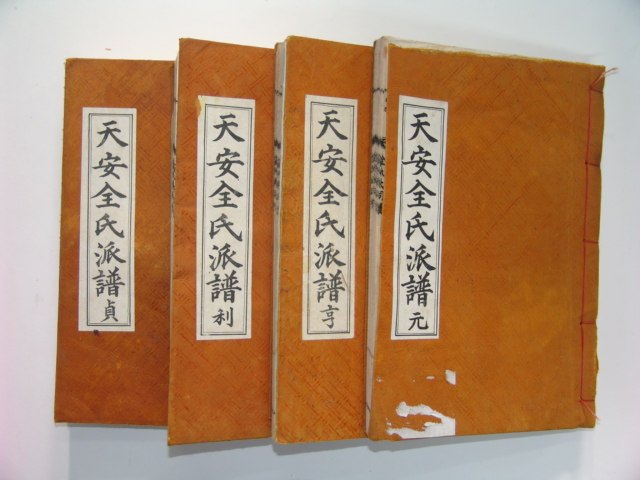 天安全氏派譜 元
天安全氏派譜 亨
天安全氏派譜 利
天安全氏派譜 貞